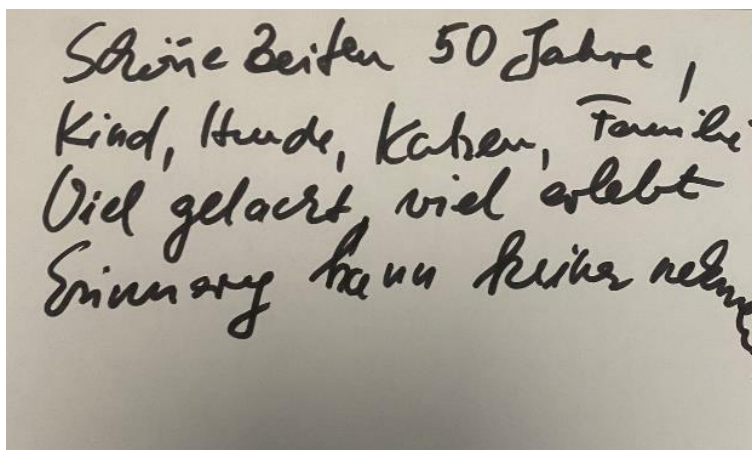 Schöne Zeiten 50 Jahre,
Kind, Hunde, Katzen, Familie
Viel gelacht, viel erlebt
Erinnerung kann keiner nehmen